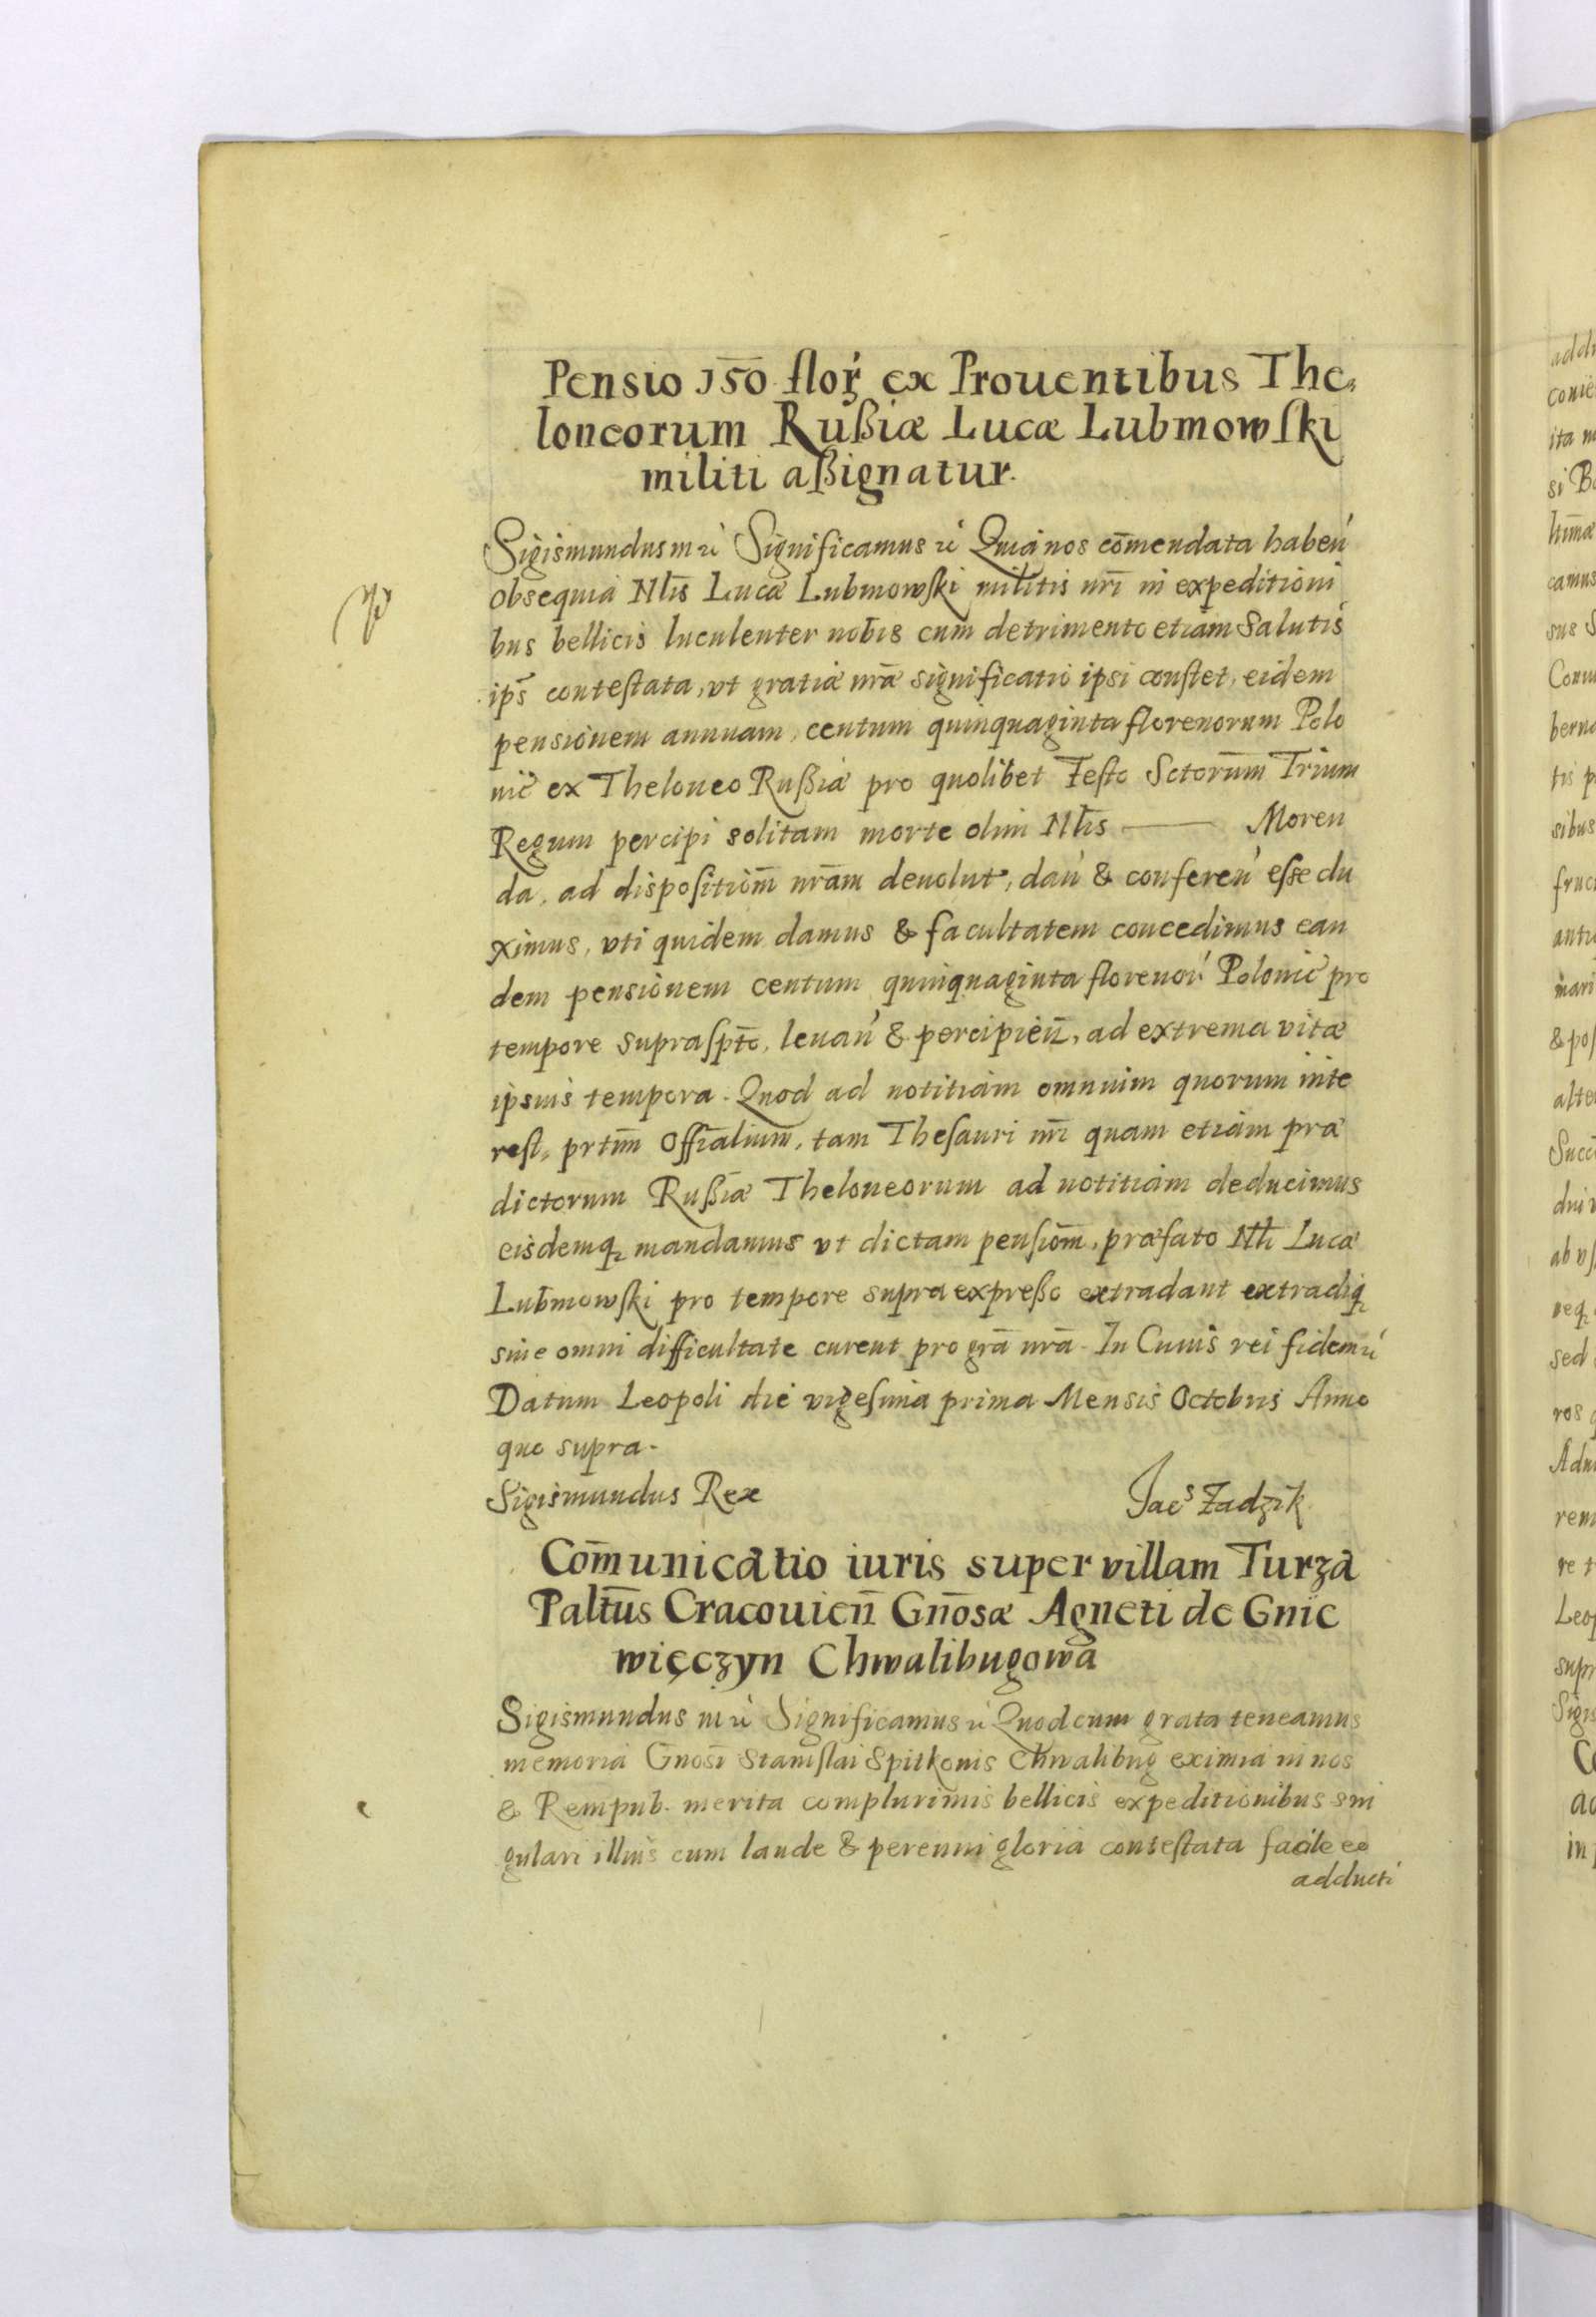 Pensio 150 flor̃ ex Prouentibus The,
loneorum Rußiæ Lucæ Lubmowſki
militi aßignatur.
Sigismundus III rć Significamus rć Quia nos cōmendata habeń
obsequia Nl̄is Lucæ Lubmowſki militis nr̄i in expeditioni
bus bellicis luculenter nobis cum detrimento etiam Salutis
ips̄ conteſtata, vt gratiæ nr̄æ significatio ipsi conſtet, eidem
pensionem annuam, centum quinquaginta florenorum Polo
nic̃ ex Theloneo Rußiæ pro quolibet Feſto Sctorum̄ Trium
Regum percipi solitam morte olim Nl̄is —— Moren
da, ad dispoſitiōm nr̄am deuolut̃, dań & confereń eſse du
ximus, vti quidem damus & facultatem concedimus ean
dem pensionem centum quinquaginta florenoŕ Polonic̃ pro
tempore supraſpt̄o, leuań & percipień, ad extrema vitæ
ipsius tempora. Quod ad notitiam omnium quorum inte
reſt, prtim̄ Offīalium, tam Theſauri nr̄i quam etiam præ
dictorum Rußiæ Theloneorum ad notitiam deducimus
eisdemq̨ mandamus vt dictam penſiōm, præfato Nl̄i Lucæ
Lubmowſki pro tempore supra expreßo extradant extradiq̨
sine omni difficultate curent pro grā nr̄a. In Cuius rei fidem rć
Datum Leopoli die vigeſima prima Mensis Octobris Anno
quo supra.
Sigismundus Rex
Jacˢ Zadzik
Com̄unicatio iuris super villam Turza
Palt̄us Cracouień Gn̄osæ Agneti de Gnie
więczyn Chwalibugowa
Sigismundus III rć Significamus rć Quod cum grata teneamus
memoria Gn̄osi Staniſlai Spitkonis Chwalibug eximia in nos
& Rempub. merita complurimis bellicis expeditionibus sin
gulari illius cum laude & perenni gloria conteſtata facile eo
adducti